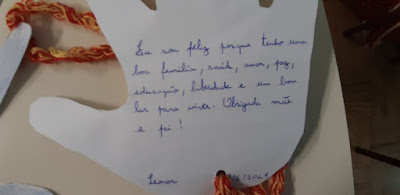 Eu sou feliz porque tenho uma
boa família, saúde, amor, paz,
educação, liberdade e um bom
lar para viver. Obrigada mãe
e pai!
Leonor
/2021